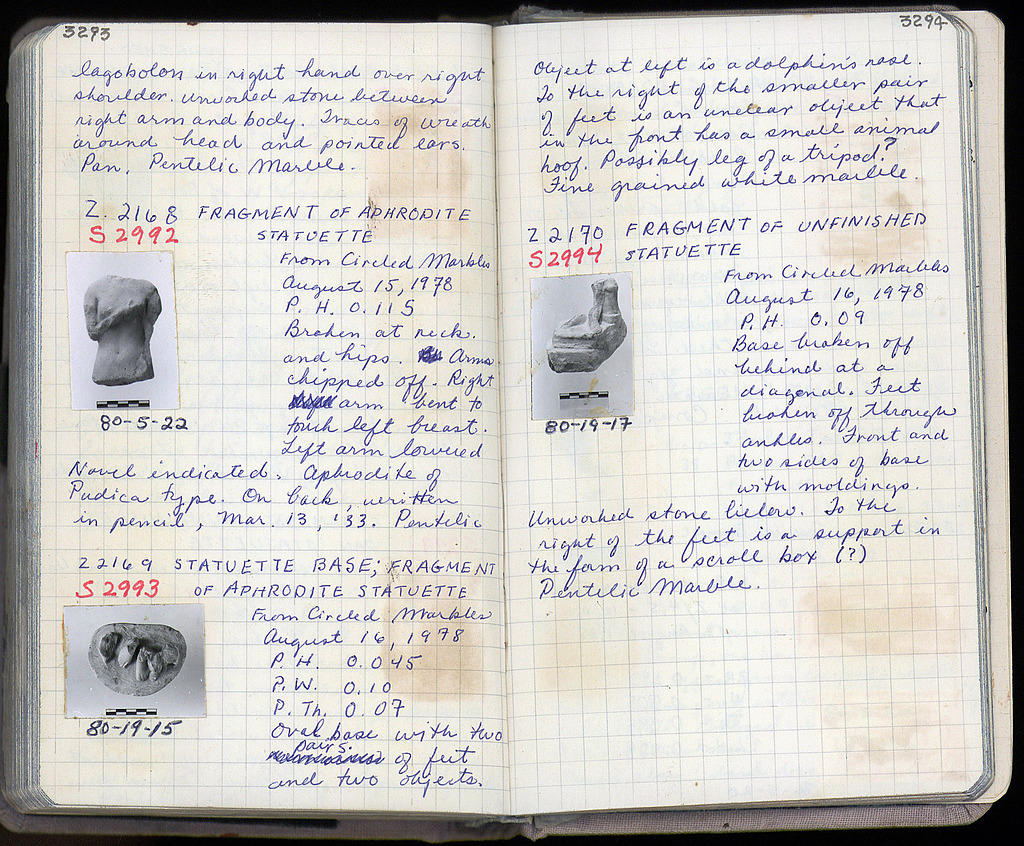 3293
lagobolon in right hand over right
shoulder. unworked stone between
right arm and body. Traces of wreath
around head and pointed ears.
Pan. Pentelic Marble.
Z. 2168 FRAGMENT OF APHRODITE
S 2992 STATUETTE
From Circled Marbles
August 15, 1978
P. H. 0.115
Broken at neck.
and hips. Arms
chipped off. Right
arm bent to
touch left breast.
Left arm lowered
80-5-22
Navel indicated. Aphrodite of
Pudica type. On back, written
in pencil, Mar. 13, '33. Pentelic
Z 2169 STATUETTE BASE; FRAGMENT
S 2993 OF APHRODITE STATUETTE
From Circled Marbles
August 16, 1978
P. H. 0.045
P. W. 0.10
P. Th. 0.07
80-19-15
Oval base with two
pairs
of feet
and two objects.
3294
Object at left is a dolphin's nose.
To the right of the smaller pair
of feet is an unclear object that
in the front has a small animal
hoof. Possibly leg of a tripod?
Fine grained white marble.
Z 2170 FRAGMENT OF UNFINISHED
S 2994 STATUETTE
From Circled Marbles
August 16, 1978
P. H. 0.09
Base broken off
behind at a
diagonal. Feet
broken off through
ankles. Front and
two sides of base
with moldings.
80-19-17
Unworked stone below. To the
right of the feet is a support in
the form of a scroll box (?)
Pentelic Marble.